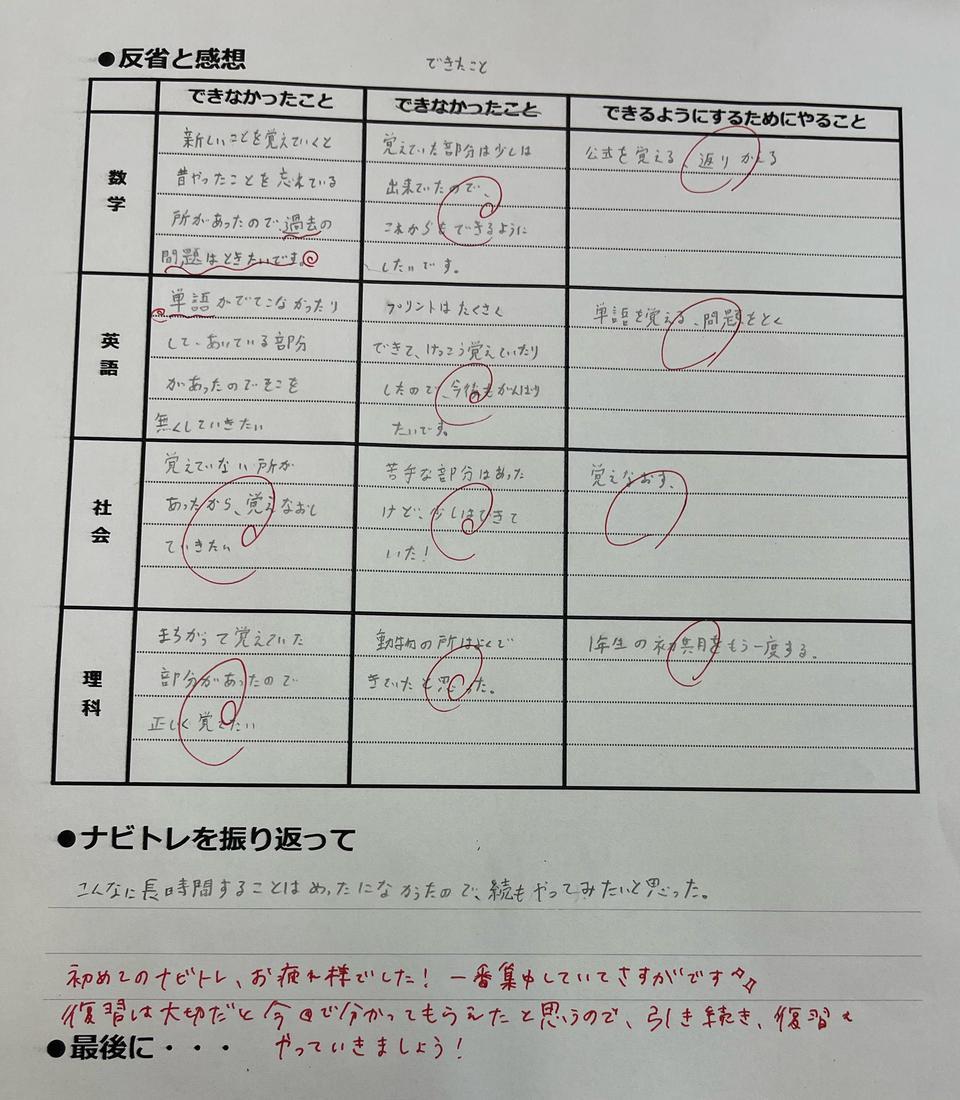 ●反省と感想
できたこと
できなかったこと
できなかったこと
できるようにするためにやること
数学
新しいことを覚えていくと
昔やったことを忘れている
所があったので過去の
問題はときたいです。
覚えていた部分は少しは
出来ていたので、
これからもできるように
したいです。
公式を覚える、返り
英語
単語がでてこなかったり
して、あいている部分
があったのでそこを
無くしていきたい
プリントはたくさん
できて、けっこう覚えていたり
したので、今後もがんばり
たいです。
単語を覚える、問題をとく
社会
覚えていない所が
あったから、覚えなおし
ていきたい
苦手な部分はあった
けど、少しはできて
いた！
覚えなおす、
理科
まちがって覚えていた
部分があったので
正しく覚えたい
動物の所はよくで
きていたと思った。
1年生の初期をもう一度する。
●ナビトレを振り返って
こんなに長時間することはめったになかったので、続もやってみたいと思った。
初めてのナビトレ、お疲れ様でした！一番集中していてさすがです☆☆
復習は大切だと今回で分かってもらえたと思うので、引き続き、復習を
やっていきましょう！
●最後に・・・